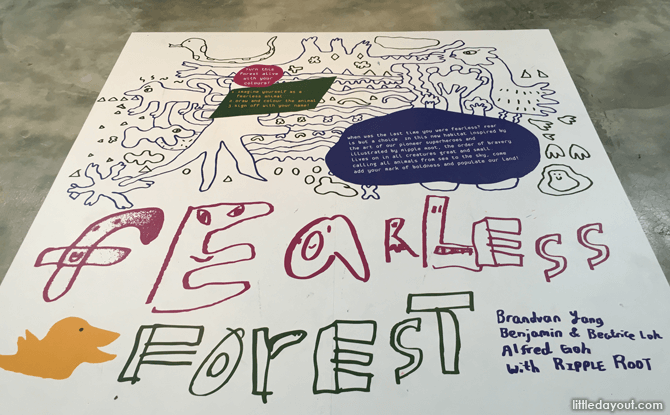 Turn this
Forest alive
with your
colours!
1. Imagine yourself as a
fearless animal
2. Draw and colour the animal
3. Sign off with your name!
When was the last time you were fearless? Fear
is but a choice. In this new habitat inspired by
the art of our pioneer superheroes and
illustrated by Ripple Root, the order of bravery
lives on in all creatures great and small.
Calling all animals from sea to the sky, come
add your mark of boldness and populate our land!
FEARLESS
FOREST
Brandvan Yang
Benjamin & Beatrice Loh
Alfred Goh
with RIPPLE ROOT
littledayout.com